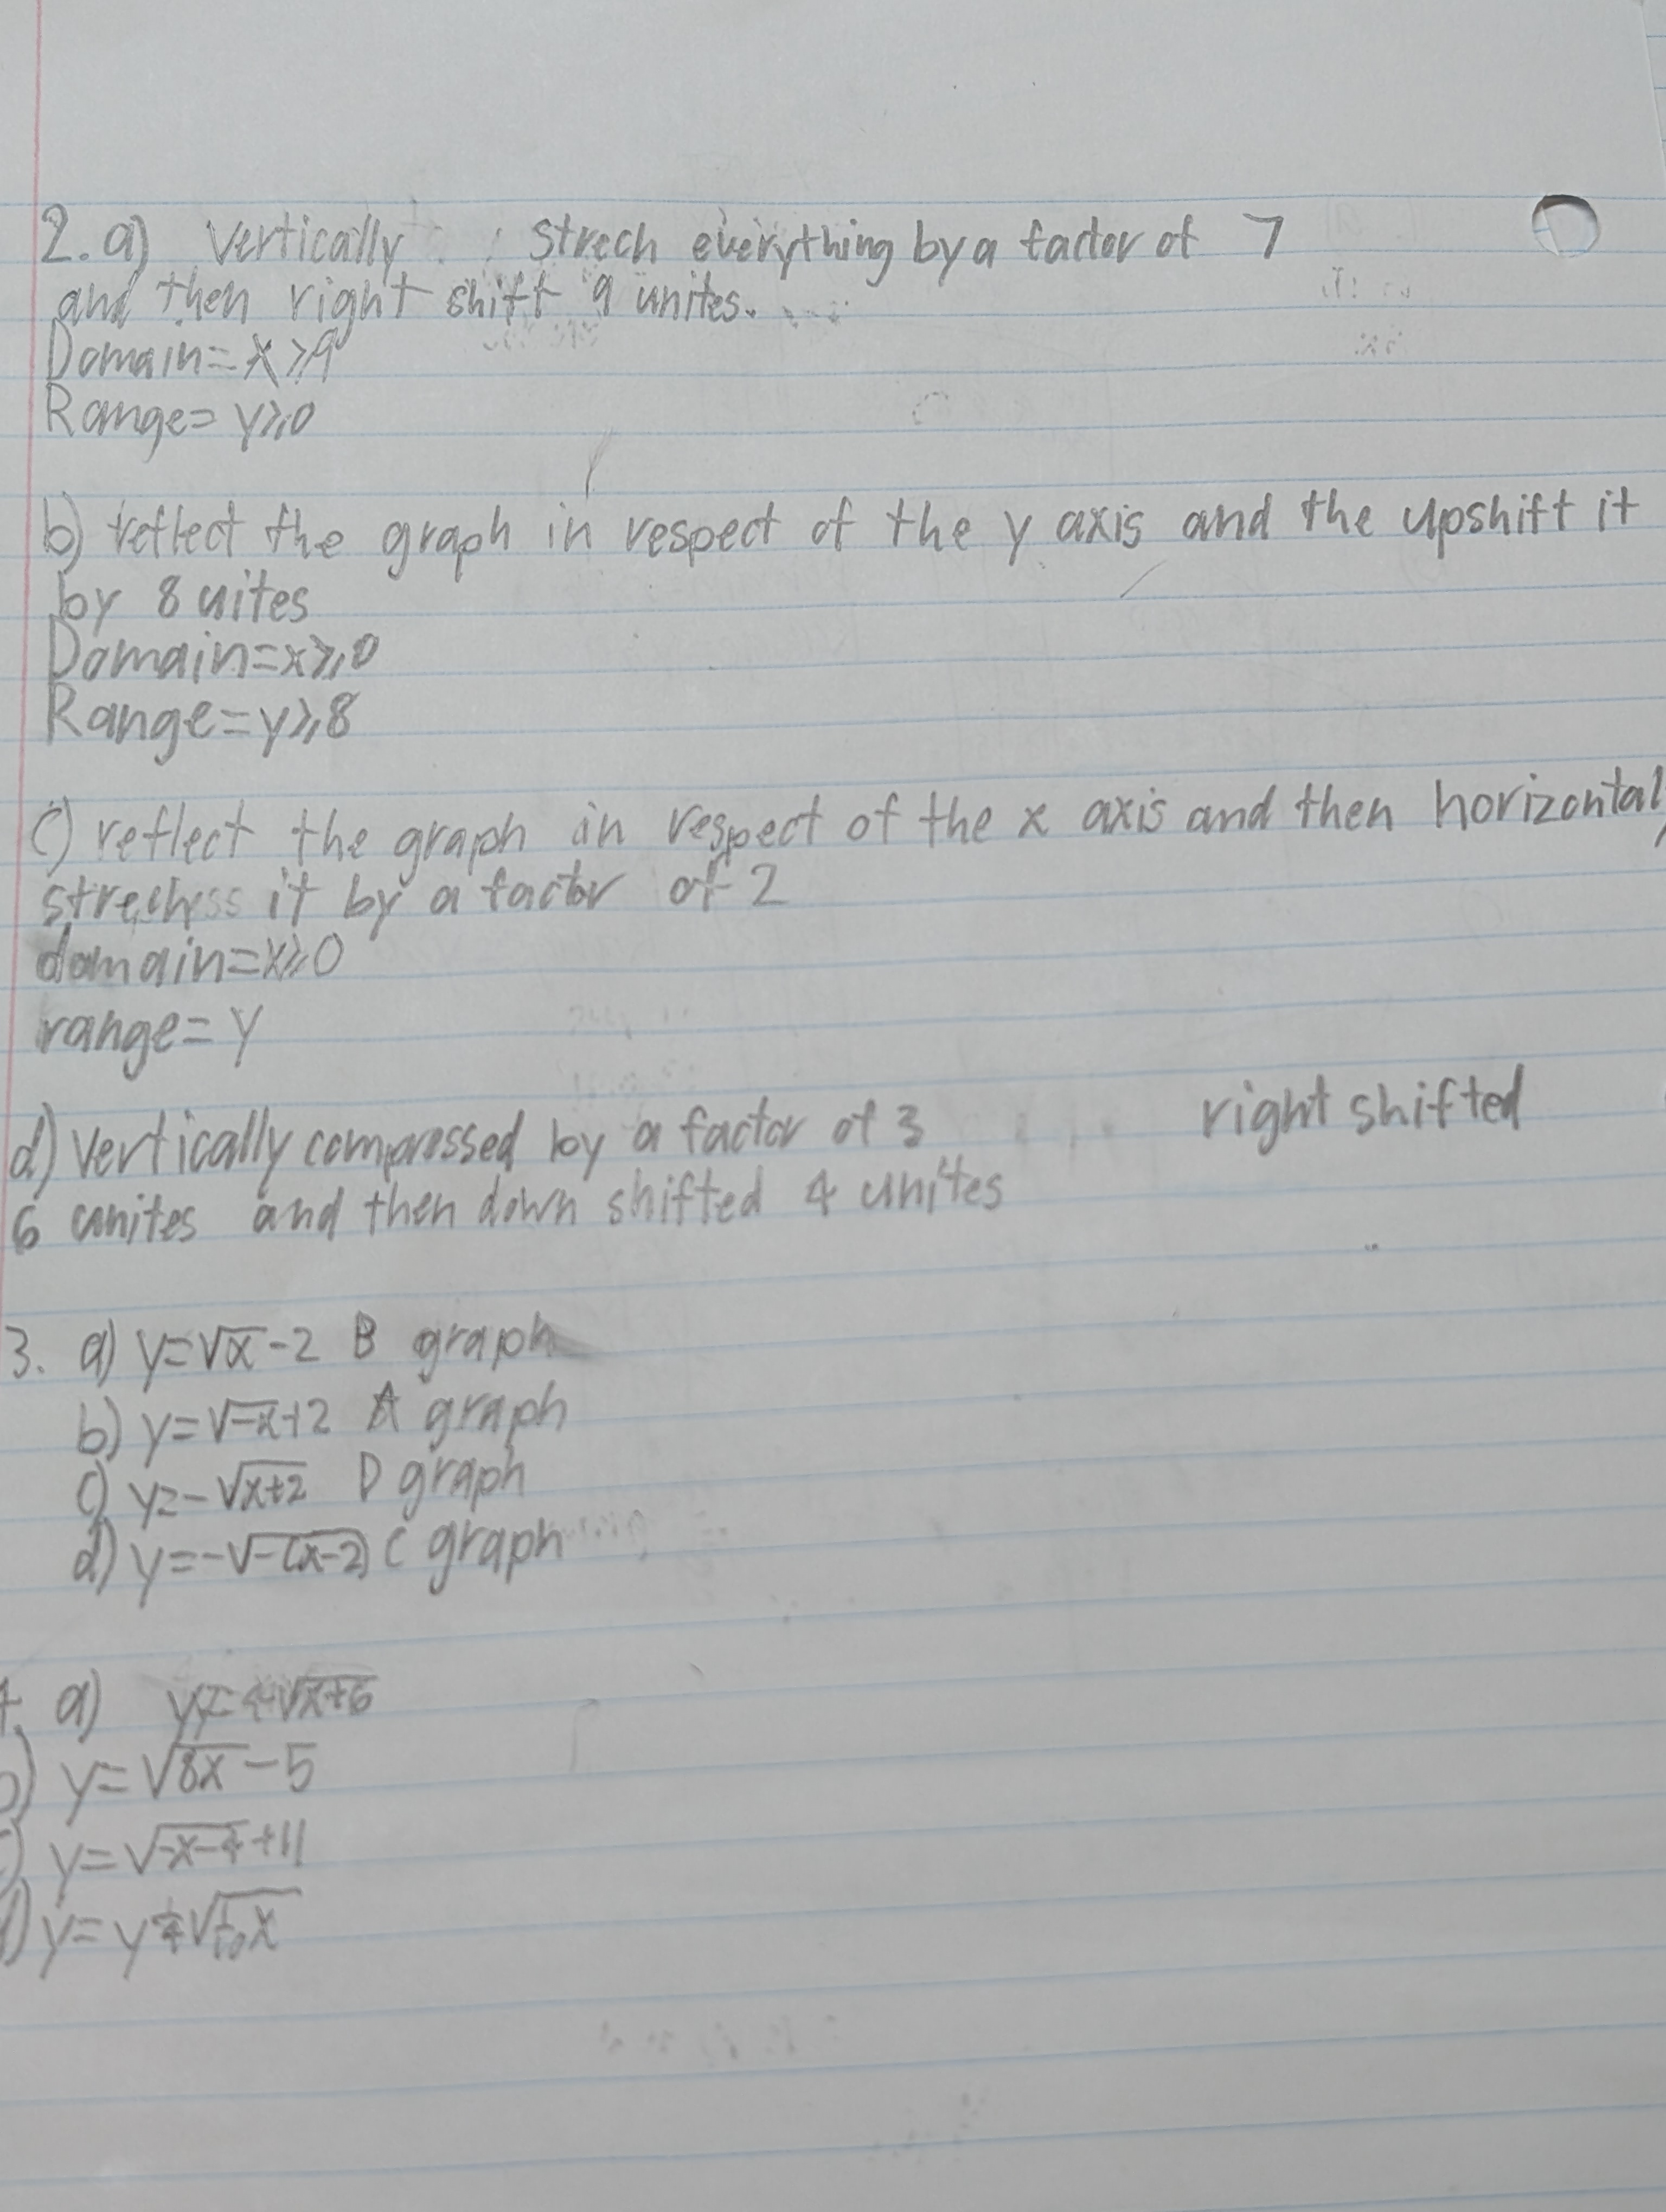 2. a) Vertically strech everything by a factor of 7
and then right shift 9 unites.
Domain= x⩾9
Range= y⩾0
b) reflect the graph in respect of the y axis and the upshift it
by 8 uites
Domain=x⩾0
Range=y⩾8
c) reflect the graph in respect of the x axis and then horizontal
it by a factor of 2
domain=x⩾0
range= y
d) Vertically compressed by a factor of 3 right shifted
6 unites and then down shifted 4 unites
3. a) y=√x-2 B graph
b) y=√-x+2 A graph
c) y=-√x+2 D graph
d) y=-√-(x-2) C graph
a) y=4√x+6
) y=√8x -5
) y=√-x-4+11
) y= y 1/4√1/10x